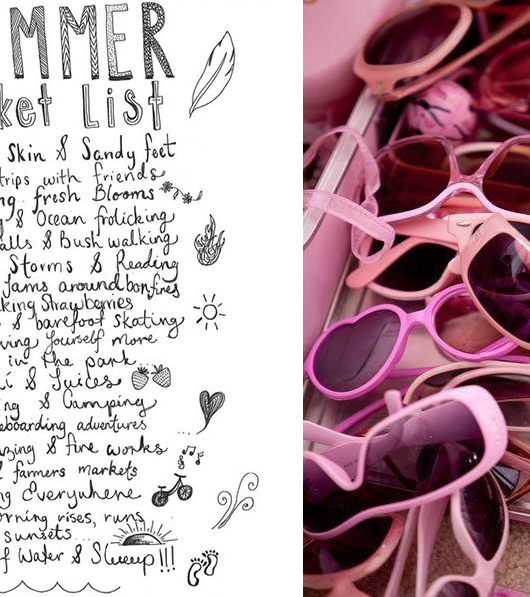 MMER
ket List
Skin & Sandy feet
trips with friends
ng fresh Blooms
& Ocean frolicking
alls & Bush walking
Storms & Reading
Jams around bonfires
king Strawberries
& barefoot skating
ving yourself more
in the park
i & Juices
ng & Camping
eboarding adventures
azing & fire works
farmers markets
ng Everywhere
orning rises, runs
sunsets
f Water & Sleeep!!!